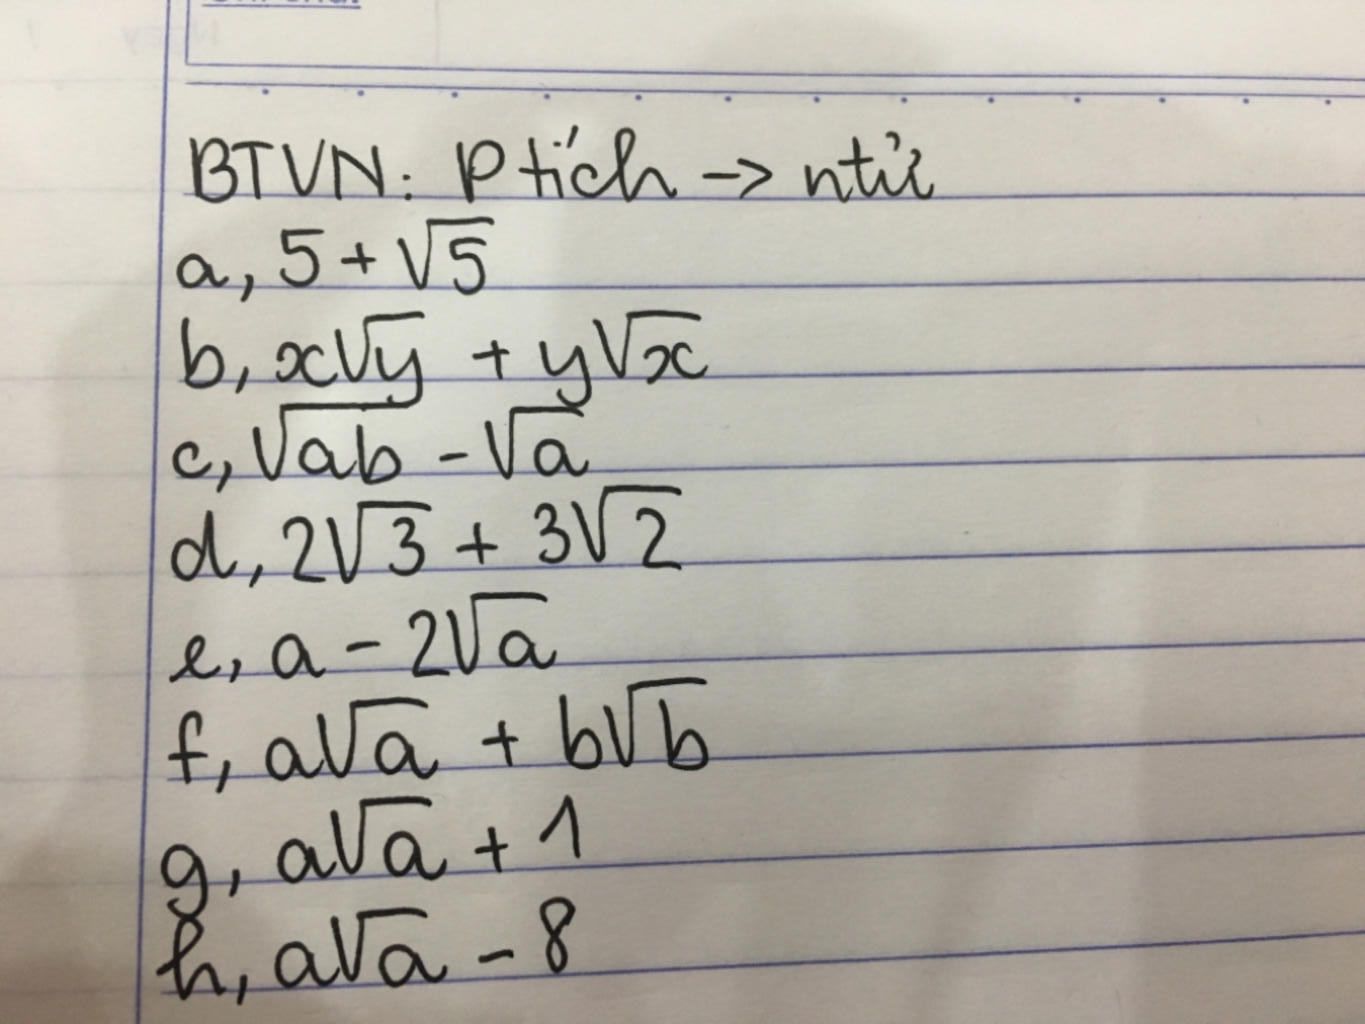 BTVN: Ptích → ntử
a, 5 + √5
b, x√y + y√x
c, √ab - √a
d, 2√3 + 3√2
e, a - 2√a
f, a√a + b√b
g, a√a + 1
h, a√a - 8